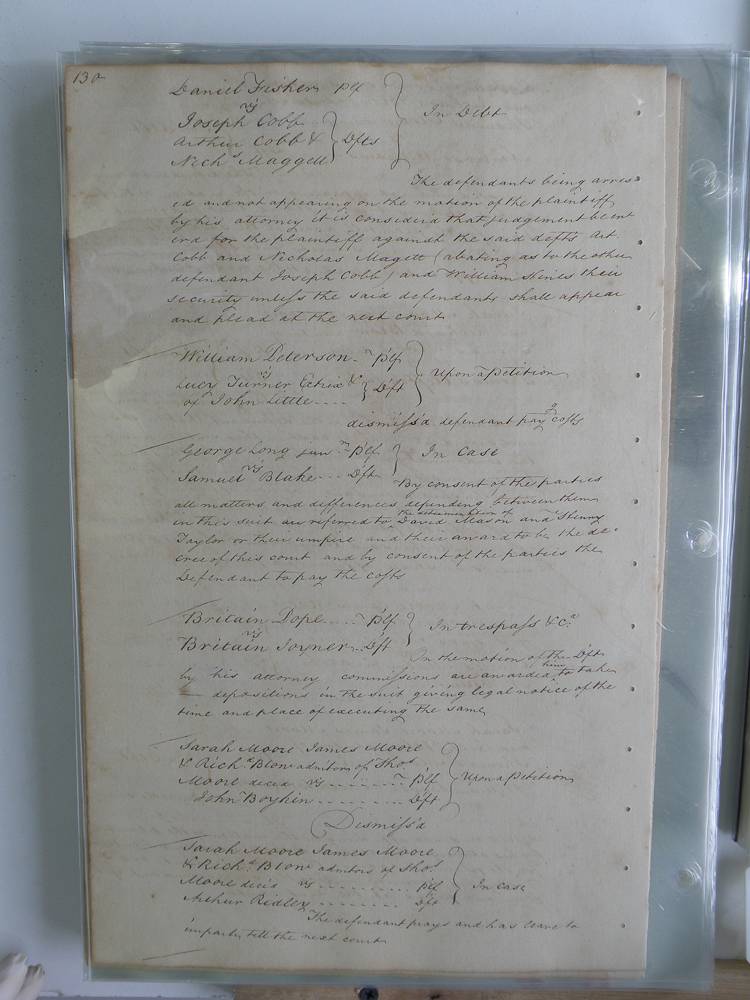 130
Daniel Fisher Plf
vs
Joseph Cobb
Arthur Cobb & Dfts In Debt
Nichs Maggett
The defendants being arres
ed and not appearing on the motion of the plaintiff
by his attorney it is considerd that judgement be ent
erd for the plaintiff against the said defts Art
Cobb and Nicholas Magett (abating as to the other
defendant Joseph Cobb) and William Hines their
security unless the said defendants shall appear
and plead at the next court
William Peterson Plf
vs
Lucy Turner Ectrix &c Dft Upon a Petition
of John Little
dismiss'd defendant pay g costs
George Long jun Plf
vs In Case
Samuel Blake Dft
By consent of the parties
all matters and differences depending between them
in this suit are referred to the determination of David Mason and Henry
Taylor or their umpire and their award to be the de
cree of this court and by consent of the parties the
Defendant to pay the costs
Britain Pope Plf
vs In trespass &c.a
Britain Joyner Dft
On the motion of the Dft
by his attorney commissions are awarded him to take
depositions in the suit giving legal notice of the
time and place of executing the same
Sarah Moore James Moore
& Richd Blow admtors of Thos
Moore decd vs Plf Upon a Petition
John Boykin Dft
Dismiss'd
Sarah Moore James Moore
& Richd Blow admtors of Thos
Moore decd vs Plf In Case
Arthur Ridley Dft
The defendant prays and has leave to
imparle till the next court